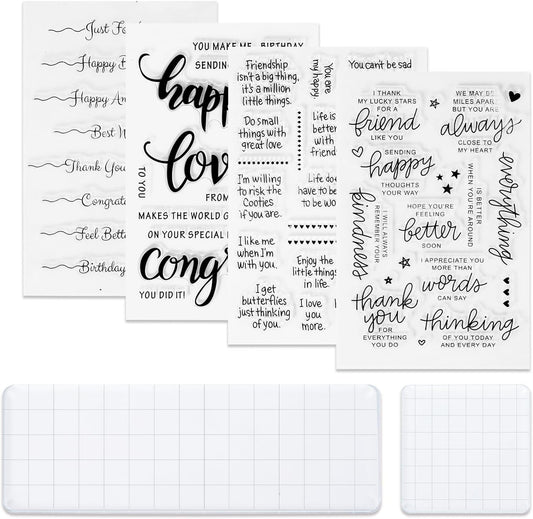 Just Fo
Happy B
Happy An
Best W
Thank You
Congrat
Feel Bette
Birthday
YOU MAKE ME
BIRTHDAY
SENDING
happ
love
TO YOU
FROM
MAKES THE WORLD G
ON YOUR SPECIAL
cong
YOU DID IT!
Friendship
isn't a big thing,
it's a million
little things.
Do small
things with
great love
I'm willing
to risk the
Cooties
if you are.
I like me
when I'm
with you.
I get
butterflies
just thinking
of you.
You are
my happy
Life is
better
with
friend
Life doe
have to be
to be wo
Enjoy the
little things
in life.
I love
you
more.
You can't be sad
I THANK
MY LUCKY STARS
FOR A
friend
LIKE YOU
WE MAY BE
MILES APART
BUT YOU ARE
always
CLOSE TO
MY HEART
SENDING
happy
THOUGHTS
YOUR WAY
everything
IS BETTER
WHEN YOU'RE AROUND
kindness
I WILL ALWAYS
REMEMBER YOUR
HOPE YOU'RE
FEELING
better
SOON
I APPRECIATE YOU
MORE THAN
words
CAN SAY
thank
you
FOR
EVERYTHING
YOU DO
thinking
OF YOU TODAY
AND EVERY DAY